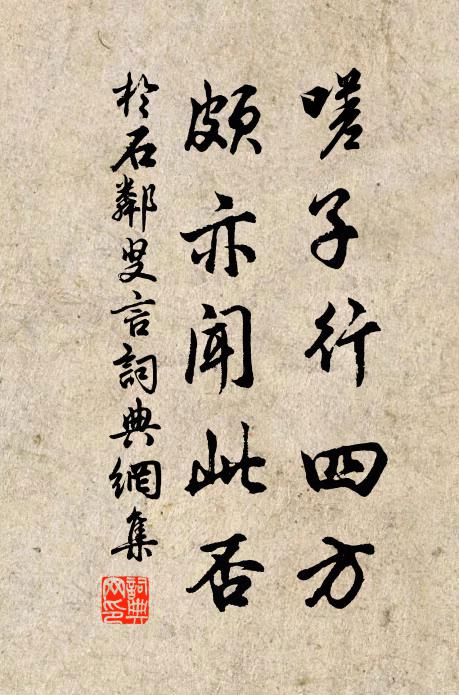 嗟子行四方
頗亦聞此否
於石鄰叟言詞典網集
詞典网印